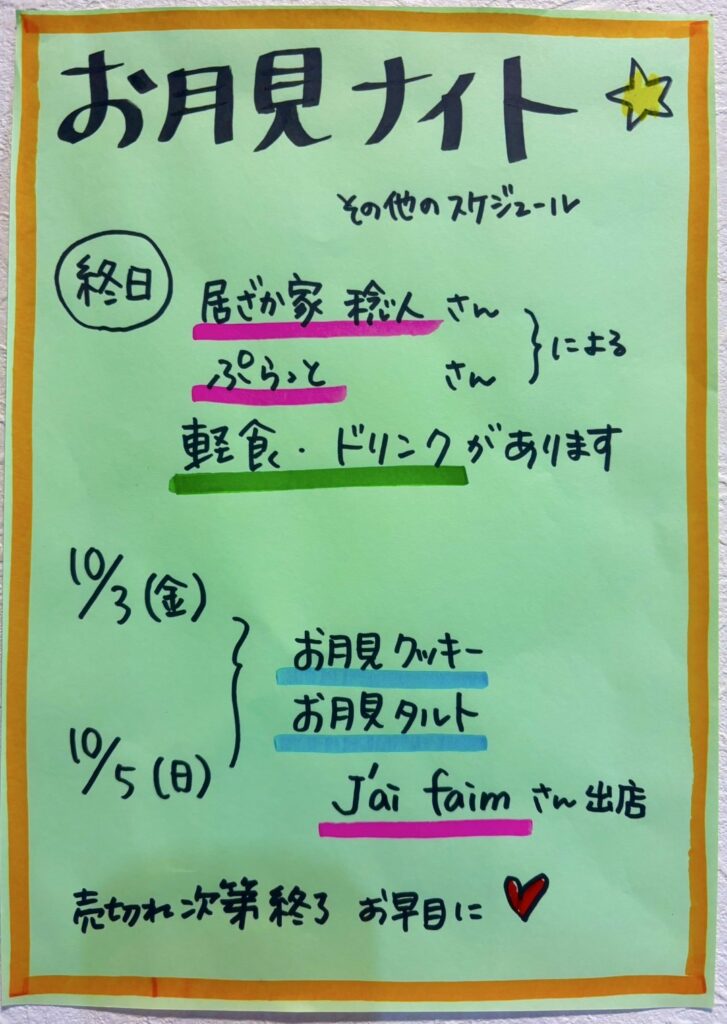 お月見ナイト
その他のスケジュール
終日
居ざか家 稔人 さん
ぷらっと さん
による
軽食・ドリンクがあります
10/3(金)
お月見クッキー
お月見タルト
10/5(日)
J'ai faim さん出店
売切れ次第終了 お早目に